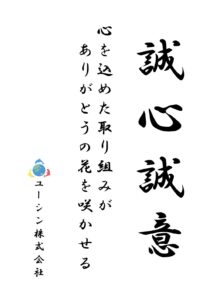 誠心誠意
心を込めた取り組みが
ありがとうの花を咲かせる
ユーシン株式会社